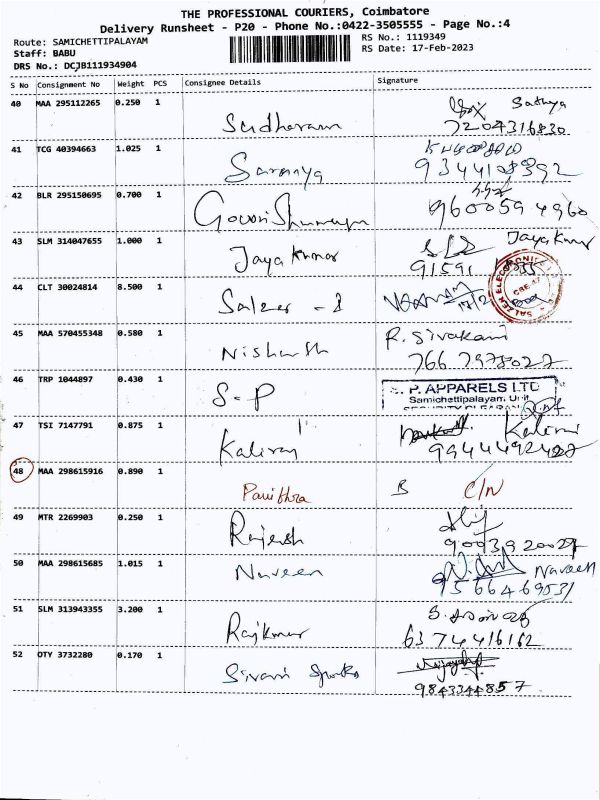 THE PROFESSIONAL COURIERS, Coimbatore
Delivery Runsheet - P20 - Phone No.:0422-3505555 - Page No.:4
Route: SAMICHETTIPALAYAM
RS No.: 1119349
Staff: BABU
RS Date: 17-Feb-2023
DRS No.: DCJB111934904
S No Consignment No Weight PCS Consignee Details Signature
40 MAA 295112265 0.250 1 Sudharam Sathya
7204316830
41 TCG 40394663 1.025 1 Saranya
9344108392
42 BLR 295150695 0.700 1
9600594960
43 SLM 314047655 1.000 1 Jayakumar Jayakumar
91591
44 CLT 30024814 8.500 1 Salzer - 1
SALZER ELECTRONICS
45 MAA 570455348 0.580 1 Nishanth R. Sivakani
766 7978027
46 TRP 1044897 0.430 1 S-P
S. P. APPARELS LTD
Samichettipalayam, Unit
47 TSI 7147791 0.875 1 Kaliraj Kalirai
9944492427
48 MAA 298615916 0.890 1 Pavithra B C/N
49 MTR 2269903 0.250 1 Rajesh
9003920027
50 MAA 298615685 1.015 1 Naveen Naveen
9566469031
51 SLM 313943355 3.200 1 Rajkumar
6374416162
52 OTY 3732280 0.170 1 Sivani Sparks
9843344857